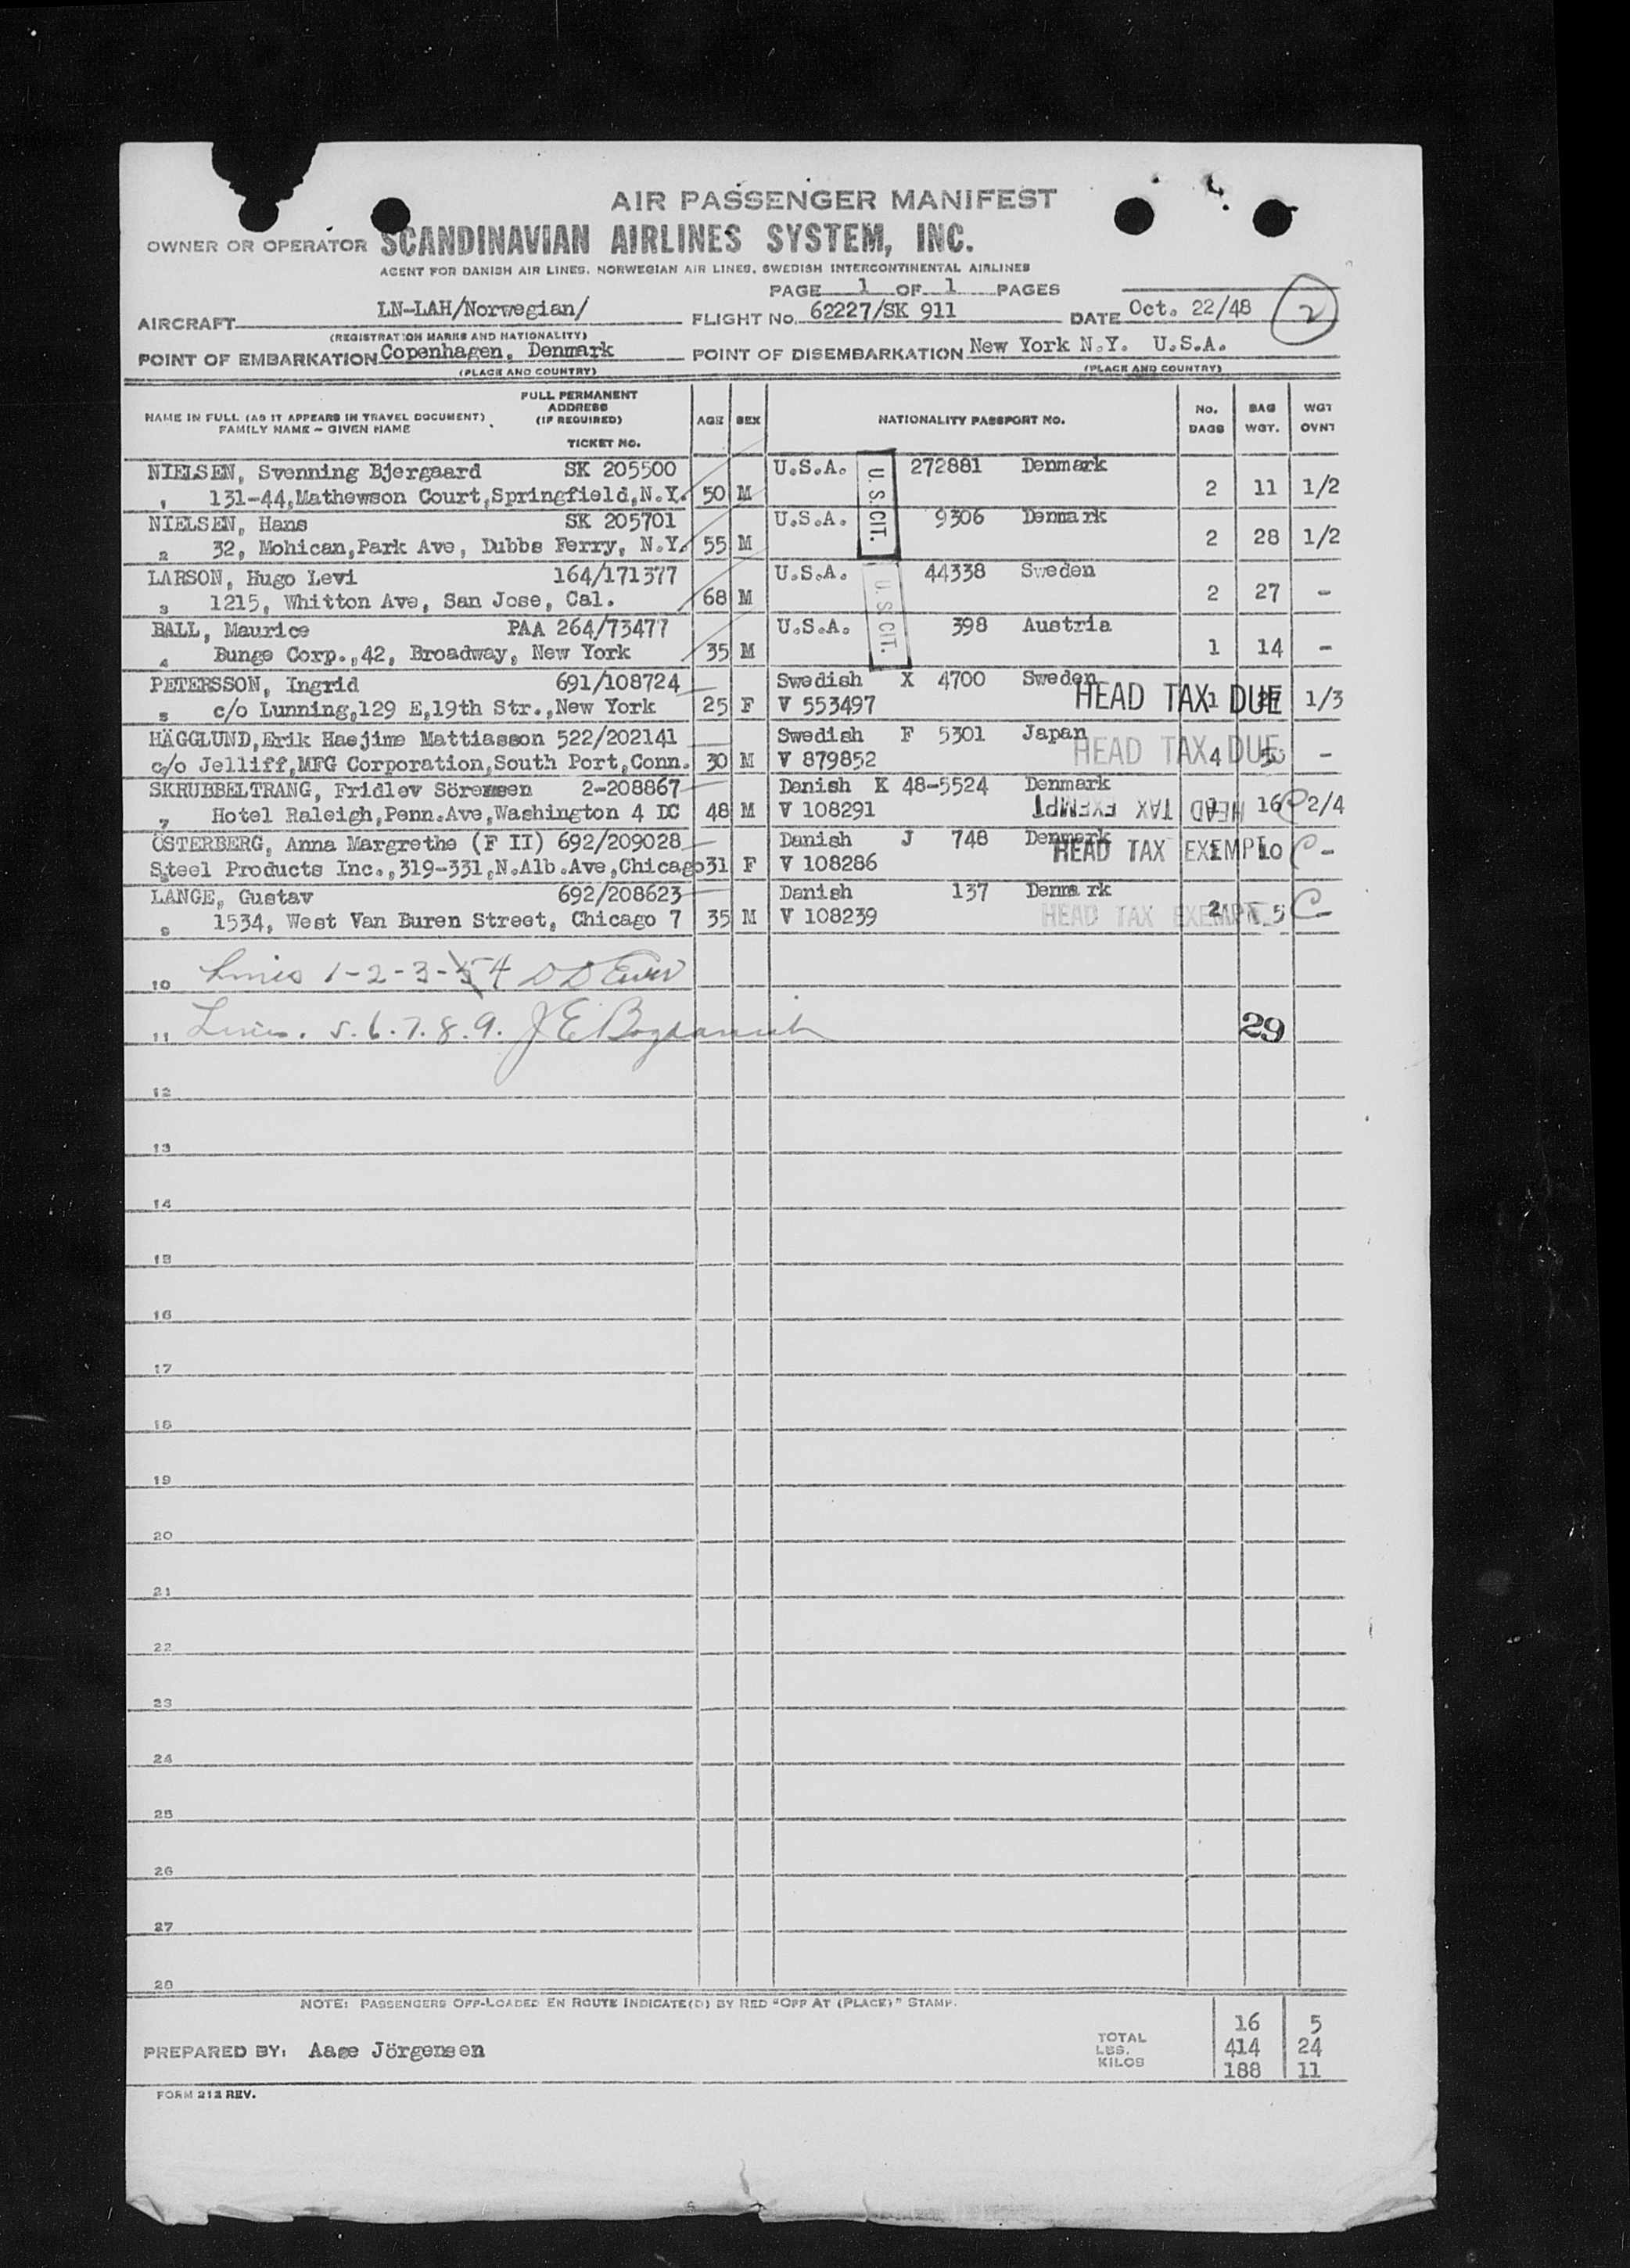 AIR PASSENGER MANIFEST
OWNER OR OPERATOR SCANDINAVIAN AIRLINES SYSTEM, INC.
AGENT FOR DANISH AIR LINES, NORWEGIAN AIR LINES, SWEDISH INTERCONTINENTAL AIRLINES
PAGE 1 OF 1 PAGES
AIRCRAFT LN-LAH/Norwegian/ FLIGHT No. 62227/SK 911 DATE Oct. 22/48 2
(REGISTRATION MARKS AND NATIONALITY)
POINT OF EMBARKATION Copenhagen, Denmark POINT OF DISEMBARKATION New York N.Y. U.S.A.
(PLACE AND COUNTRY) (PLACE AND COUNTRY)
NAME IN FULL (AS IT APPEARS IN TRAVEL DOCUMENT) FAMILY NAME - GIVEN NAME FULL PERMANENT ADDRESS (IF REQUIRED) TICKET NO. AGE SEX NATIONALITY PASSPORT NO. No. BAGS BAG WGT. WGT OVNT
NIELSEN, Svenning Bjergaard SK 205500 U.S.A. U.S.CIT. 272881 Denmark
131-44,Mathewson Court,Springfield,N.Y. 50 M 2 11 1/2
NIELSEN, Hans SK 205701 U.S.A. 9306 Denmark
2 32, Mohican,Park Ave, Dubbs Ferry, N.Y. 55 M 2 28 1/2
LARSON, Hugo Levi 164/171377 U.S.A. U.S.CIT. 44338 Sweden
3 1215, Whitton Ave, San Jose, Cal. 68 M 2 27 -
BALL, Maurice PAA 264/73477 U.S.A. 398 Austria
4 Bunge Corp.,42, Broadway, New York 35 M 1 14 -
PETERSSON, Ingrid 691/108724 Swedish X 4700 Sweden
5 c/o Lunning,129 E,19th Str.,New York 25 F V 553497 HEAD TAX DUE 1 1/3
HÄGGLUND,Erik Hasjime Mattiasson 522/202141 Swedish F 5301 Japan
c/o Jelliff,MFG Corporation,South Port,Conn. 30 M V 879852 HEAD TAX DUE 4 -
SKRUBBELTRANG, Fridlev Sörensen 2-208867 Danish K 48-5524 Denmark
7 Hotel Raleigh,Penn.Ave,Washington 4 DC 48 M V 108291 HEAD TAX EXEMPT 16 C 2/4
ÖSTERBERG, Anna Margrethe (F II) 692/209028 Danish J 748 Denmark
Steel Products Inc.,319-331,N.Alb.Ave,Chicago 31 F V 108286 HEAD TAX EXEMPT 10 C -
LANGE, Gustav 692/208623 Danish 137 Denmark
9 1534, West Van Buren Street, Chicago 7 35 M V 108239 HEAD TAX EXEMPT 2 5 C -
10 Lines 1-2-3-5 4 D D
11 Lines. 5.6.7.8.9. J E 29
12
13
14
15
16
17
18
19
20
21
22
23
24
25
26
27
28
NOTE: PASSENGERS OFF-LOADED EN ROUTE INDICATE(D) BY RED "OFF AT (PLACE)" STAMP.
TOTAL 16 5
PREPARED BY: Aage Jörgensen LBS. 414 24
KILOS 188 11
FORM 212 REV.